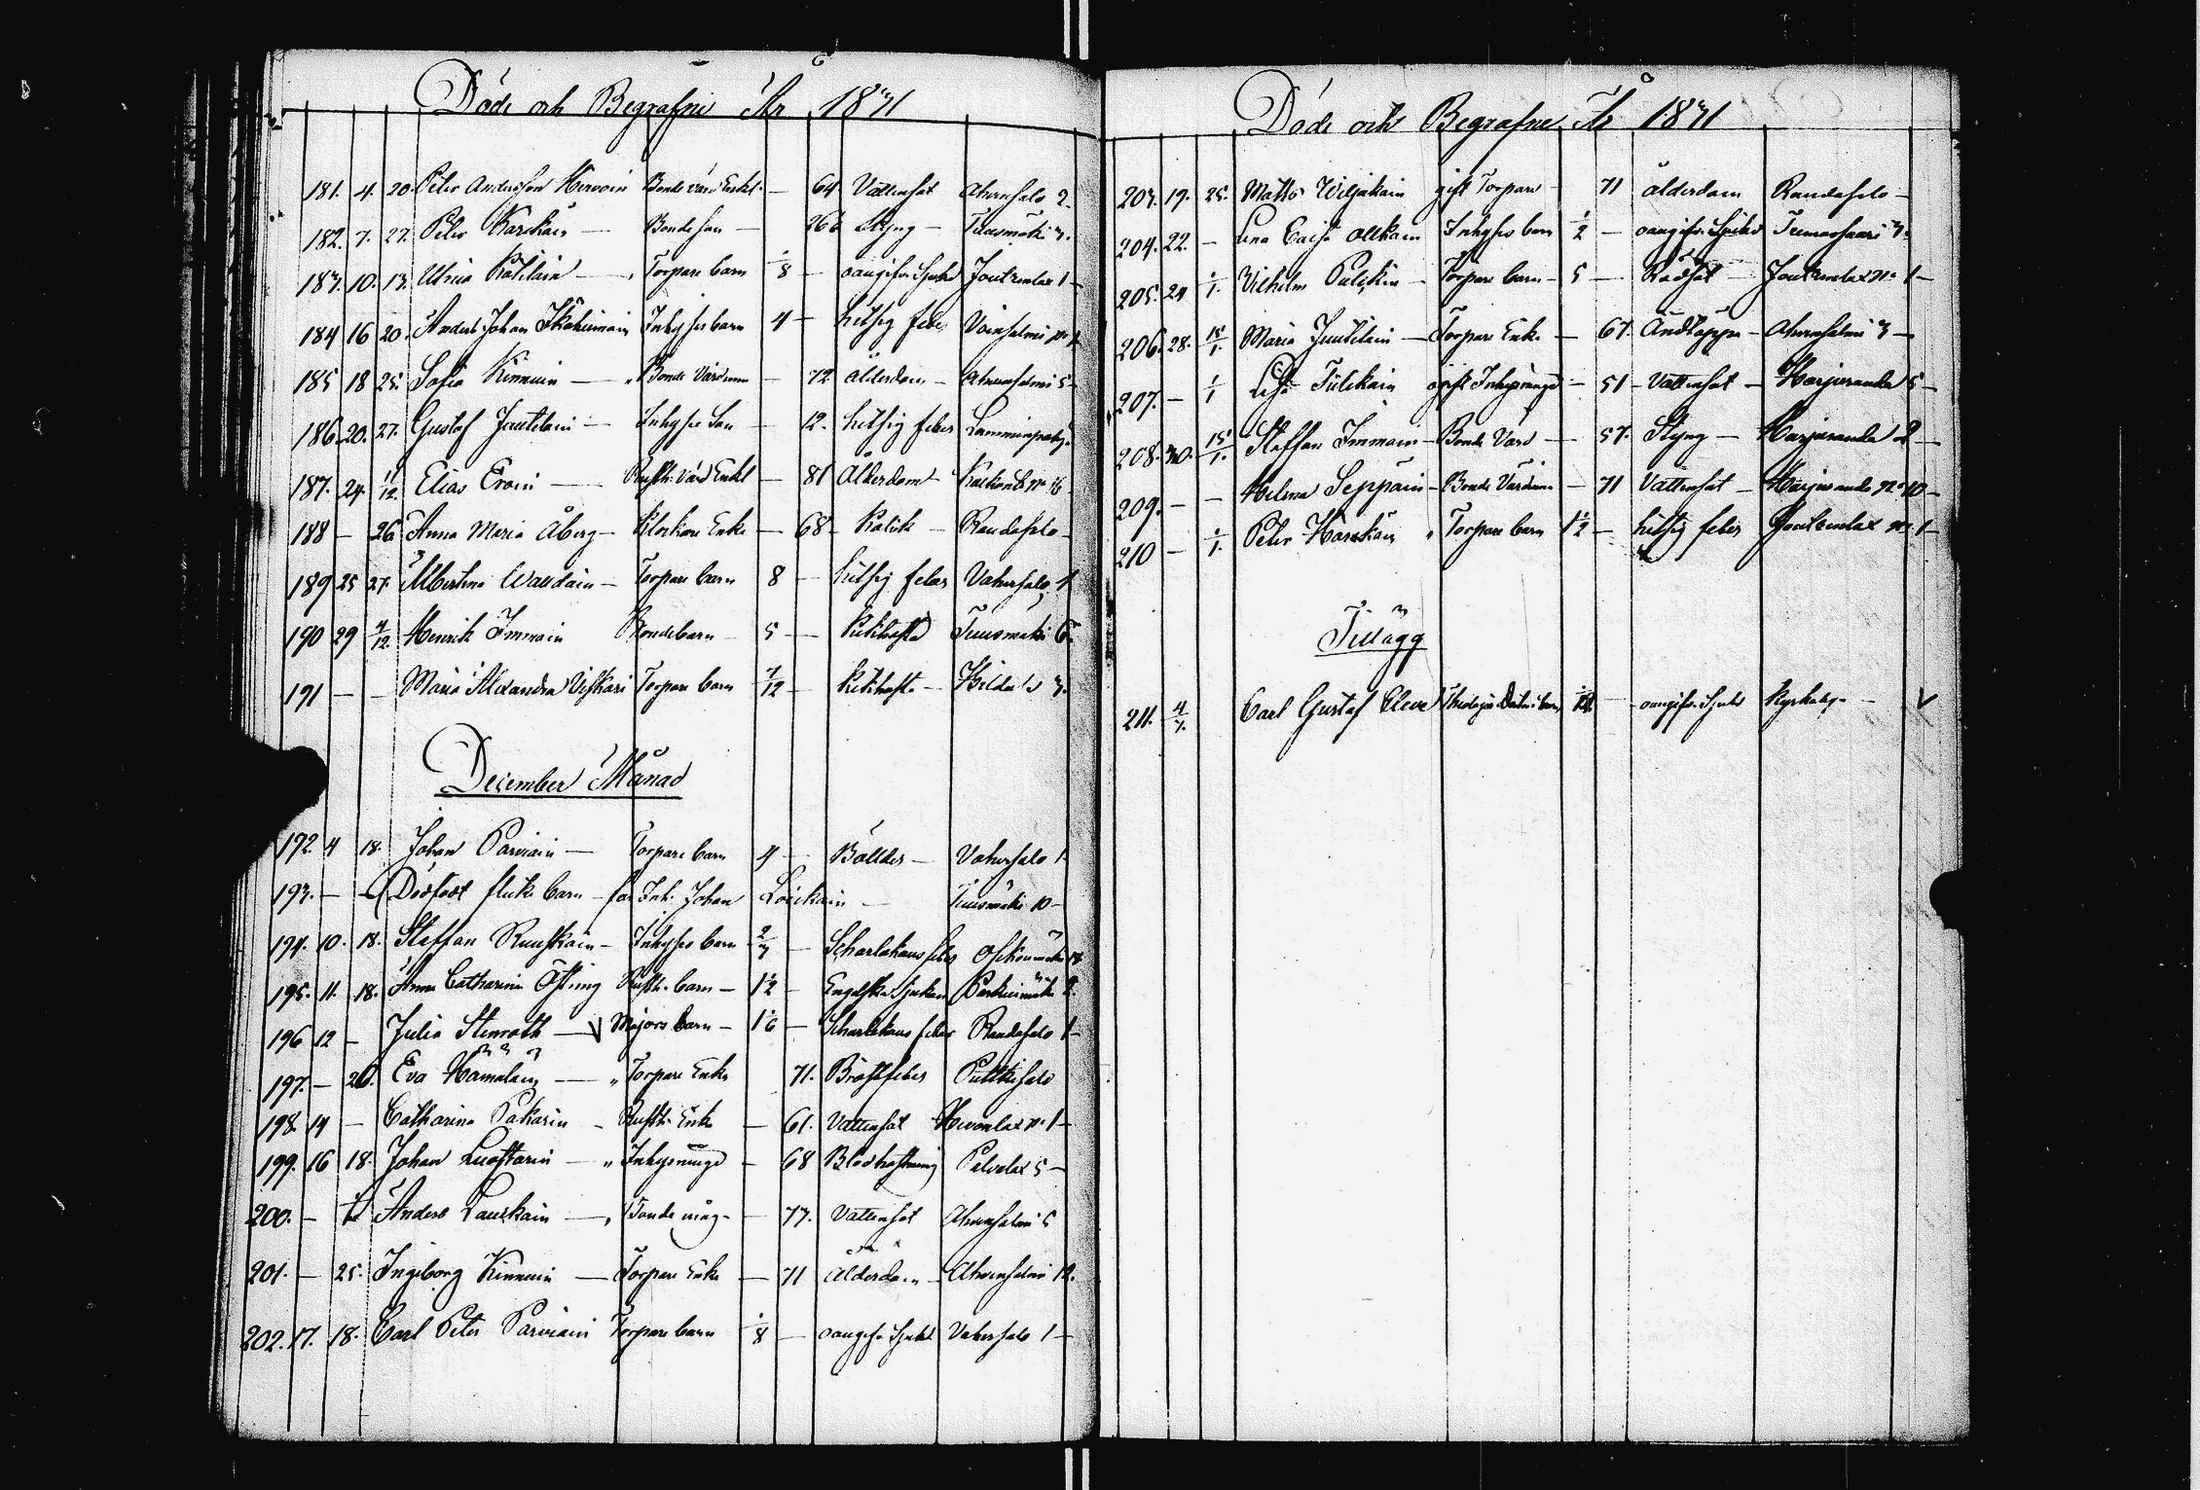 Döde och Begrafne År 1871
181. 4. 20. Peter Andersson Hirvoin Bonde värd Enkl. — 64 Vattensot Ahvensalo 2
182. 7. 27. Peter Karckain — Bondeson — 26 Styng — Tuusmäki 3.
183. 10. 13. Ulrica — Torpare barn 1/8 — oangifv. Sjukd Joutzenlax 1 —
184 16 20. Anders Johan Ikäheimoin Inhyses barn 4 — hetsig feber Voinsalmi
185 18 25. Sofia Kinnuin — Bonde Värdinna — 72 Ålderdom — Ahvensalmi 5 —
186. 20. 27. Gustaf Juutilain — Inhyse Son — 12. hetsig feber
187. 24. 11/12 Elias Eroin — Rusth. värd Enkl — 81 Ålderdom
188 — 26 Anna Maria Åberg — Klockare Enka — 68 — Kolik — Randasalo —
189 25 27. Albertina — Torpare barn 8 — hetsig feber Vahersalo 1
190 29 4/12. Henrik Immoin Bondebarn — 5 — Kikhosta Tuusmäki 6.
191 — — Maria Alexandra Viskari Torpare barn 7/12 — Kikhosta — 3.
December Månad
192. 4 18. Johan Parviain — Torpare barn 4 — Bölder — Vahersalo 1
193. — — Dödfödt flicke barn — far Inh. Johan Loickain — Tuusmäki 10 —
194. 10. 18. Staffan Ruuskain — Inhyses barn 2/3 — Scharlakans feber
195. 11. 18. Anna Catharina Rusth. barn — 1 1/2 — Engelska Sjukan 2.
196 12 — Julia Stenroth — V Majors barn — 1 1/6 — Scharlakans feber Randasalo 1 —
197. — 26. Eva Hämäläin — Torpare Enka 71. Bröstfeber
198. 14 — Catharina Pakarin — Rusth. Enka — 61. Vattensot Hevonlax N:o 1 —
199. 16 18. Johan Luostarin — Inhysinge — 68 Blodhostning Palvalax 5 —
200. — Anders Lauckain — Bonde måg — 73. Vattensot Ahvensalmi 5
201. — 25. Ingeborg Kinnuin — Torpare Enka — 71 Ålderdom — Ahvensalmi 12.
202. 17. 18. Carl Peter Parviain Torpare barn 1/8 — oangifv. Sjukd Vahersalo 1 —
Döde och Begrafne År 1871
203. 19. 25. Matts Wiljakain gift Torpare — 71 ålderdom Randasalo —
204. 22. — Lena Caisa Ollikain Inhyses barn 1/2 — oangifv. Sjukd Tuunaansaari 3.
205. 24 1/1. Vilhelm Pulckin — Torpare barn — 5 — Rödsot — Joutzenlax N:o 1 —
206. 28. 15/1. Maria Juutilain — Torpare Enka — 67. Andtäppa — Ahvensalmi 3 —
207. — 1/1 Lisa Tiilikain gift Inhysinge — 51 — Vattensot — Harjuranda 5 —
208. 30. 15/1. Staffan Immoin — Bonde Värd — 57. Styng — Harjuranda 2 —
209. — — Helena Seppäin — Bonde Värdinna — 71 Vattensot — Harjuranda N:o 10 —
210 — 1/1. Peter Karckain Torpare barn 1 1/2 — hetsig feber Joutzenlax N:o 1 —
Tillägg
211. 4/7. Carl Gustaf Cleve Theologie Doctors barn — oangifv. Sjukd — V